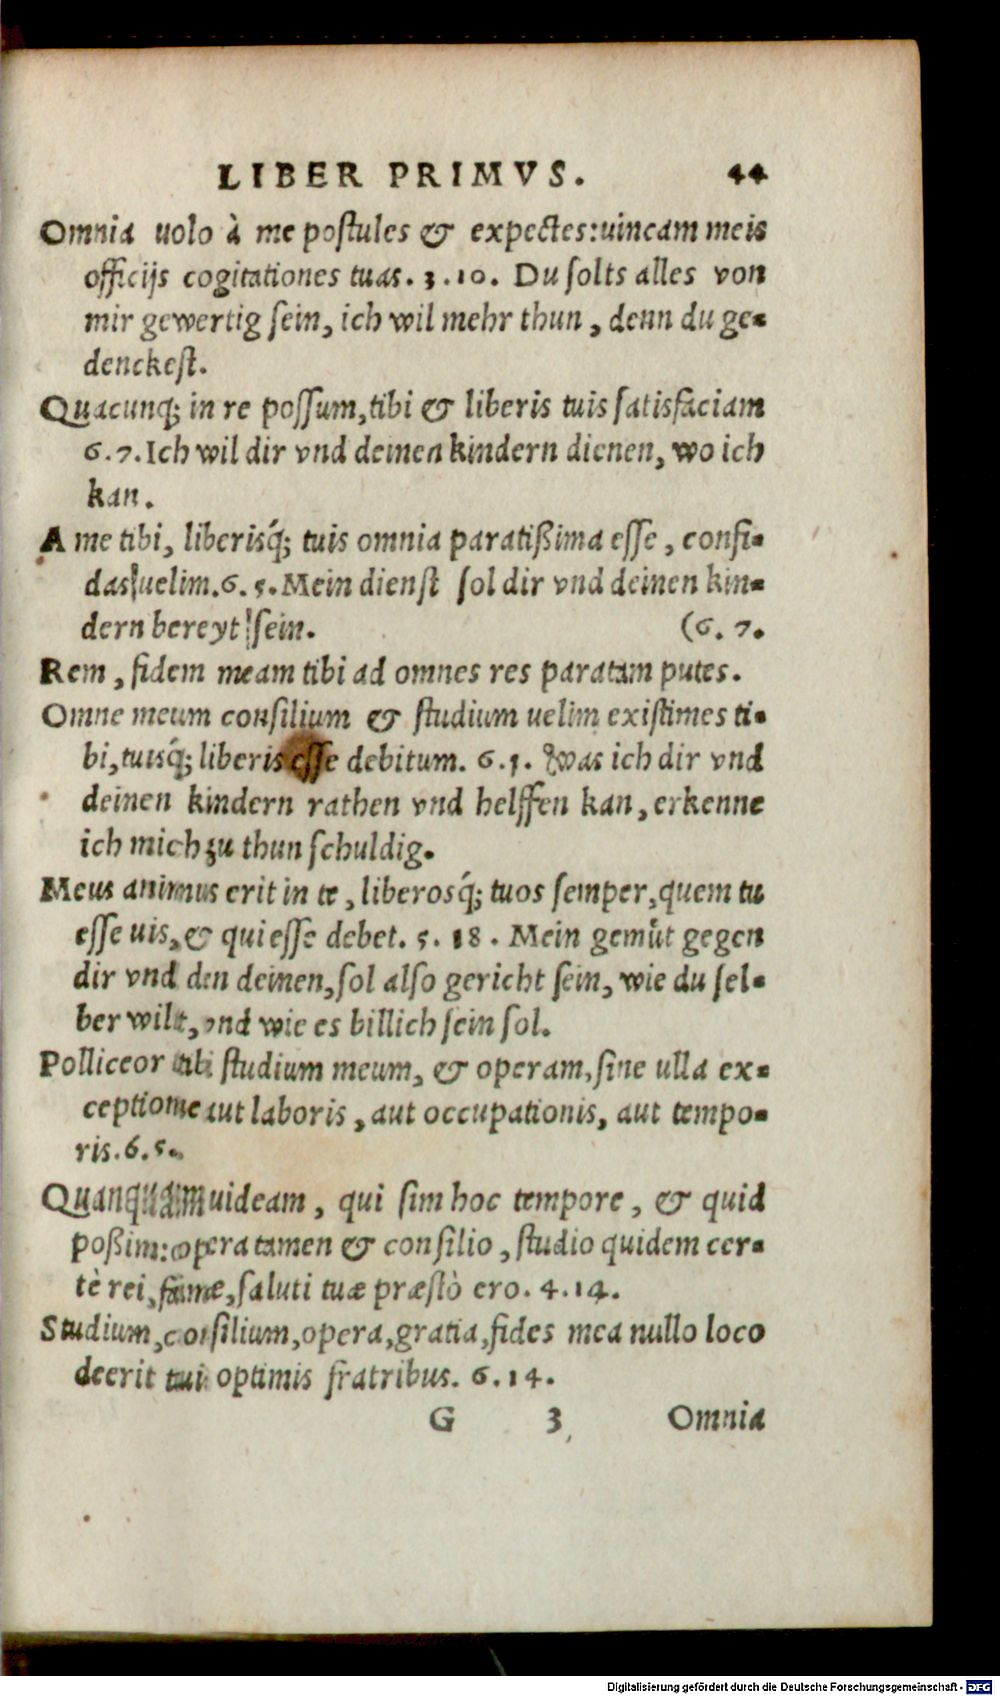 LIBER PRIMVS. 44
Omnia uolo à me postules & expectes: uincam meis
officijs cogitationes tuas. 3.10. Du solts alles von
mir gewertig sein, ich wil mehr thun, denn du ge-
denckest.
Quacunq; in re possum, tibi & liberis tuis satisfaciam
6.7. Ich wil dir vnd deinen kindern dienen, wo ich
kan.
A me tibi, liberisq́; tuis omnia paratißima esse, confi-
das uelim. 6.5. Mein dienst sol dir vnd deinen kin-
dern bereyt sein. (6.7.
Rem, fidem meam tibi ad omnes res paratam putes.
Omne meum consilium & studium uelim existimes ti-
bi, tuisq́; liberis esse debitum. 6.1. Was ich dir vnd
deinen kindern rathen vnd helffen kan, erkenne
ich mich zu thun schuldig.
Meus animus erit in te, liberosq́; tuos semper, quem tu
esse uis, & qui esse debet. 5.18. Mein gemüt gegen
dir vnd den deinen, sol also gericht sein, wie du sel-
ber wilt, vnd wie es billich sein sol.
Polliceor tibi studium meum, & operam, sine ulla ex-
ceptione aut laboris, aut occupationis, aut tempo-
ris. 6.5.
Quanquam uideam, qui sim hoc tempore, & quid
poßim: opera tamen & consilio, studio quidem cer-
tè rei, famæ, saluti tuæ præstò ero. 4.14.
Studium, consilium, opera, gratia, fides mea nullo loco
deerit tuis optimis fratribus. 6.14.
G 3 Omnia
Digitalisierung gefördert durch die Deutsche Forschungsgemeinschaft - DFG